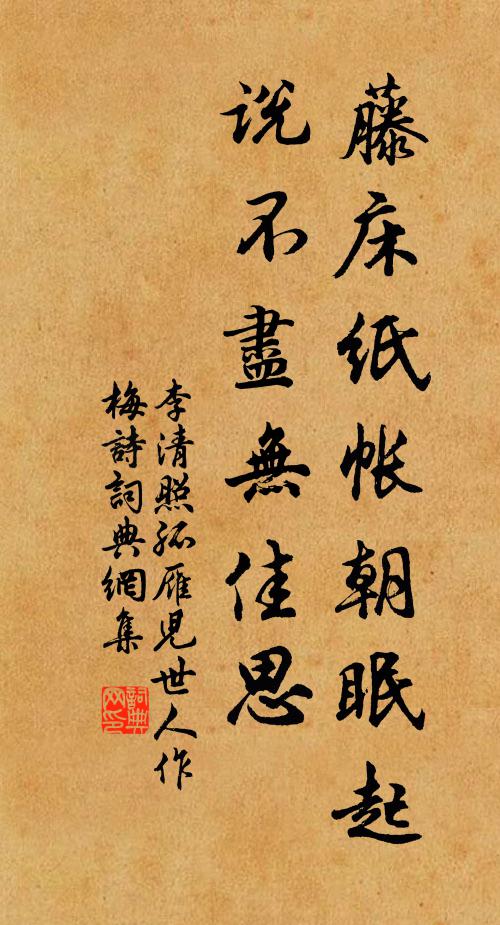 藤床紙帳朝眠起
說不盡無佳思
李清照孤雁兒世人作
梅詩詞典網集
詞典
网印